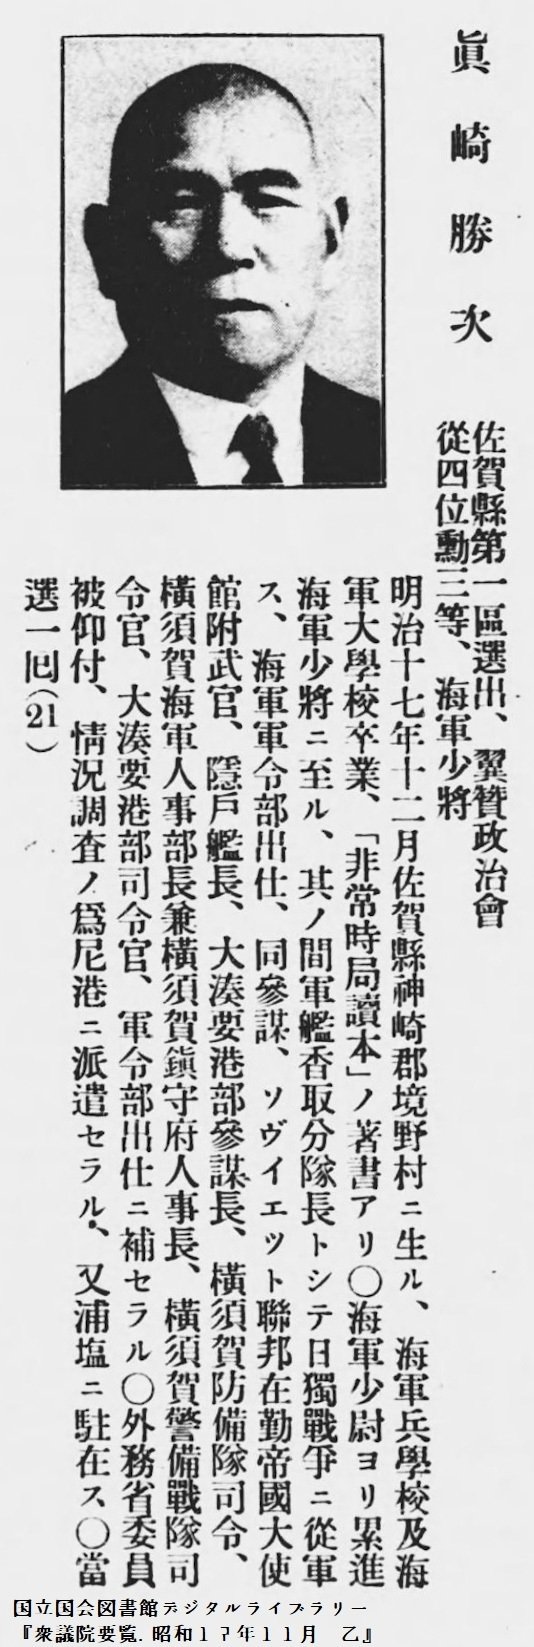 眞崎勝次
佐賀縣第一區選出、翼贊政治會
從四位勳三等、海軍少將
明治十七年十二月佐賀縣神崎郡境野村ニ生ル、海軍兵學校及海
軍大學校卒業、「非常時局讀本」ノ著書アリ〇海軍少尉ヨリ累進
海軍少將ニ至ル、其ノ間軍艦香取分隊長トシテ日獨戰爭ニ從軍
ス、海軍軍令部出仕、同參謀、ソヴイエツト聯邦在勤帝國大使
館附武官、隱戶艦長、大湊要港部參謀長、橫須賀防備隊司令、
橫須賀海軍人事部長兼橫須賀鎭守府人事長、橫須賀警備戰隊司
令官、大湊要港部司令官、軍令部出仕ニ補セラル〇外務省委員
被仰付、情況調査ノ爲尼港ニ派遣セラル、又浦塩ニ駐在ス〇當
選一囘(21)
国立国会図書館デジタルライブラリー
『衆議院要覧. 昭和17年11月 乙』